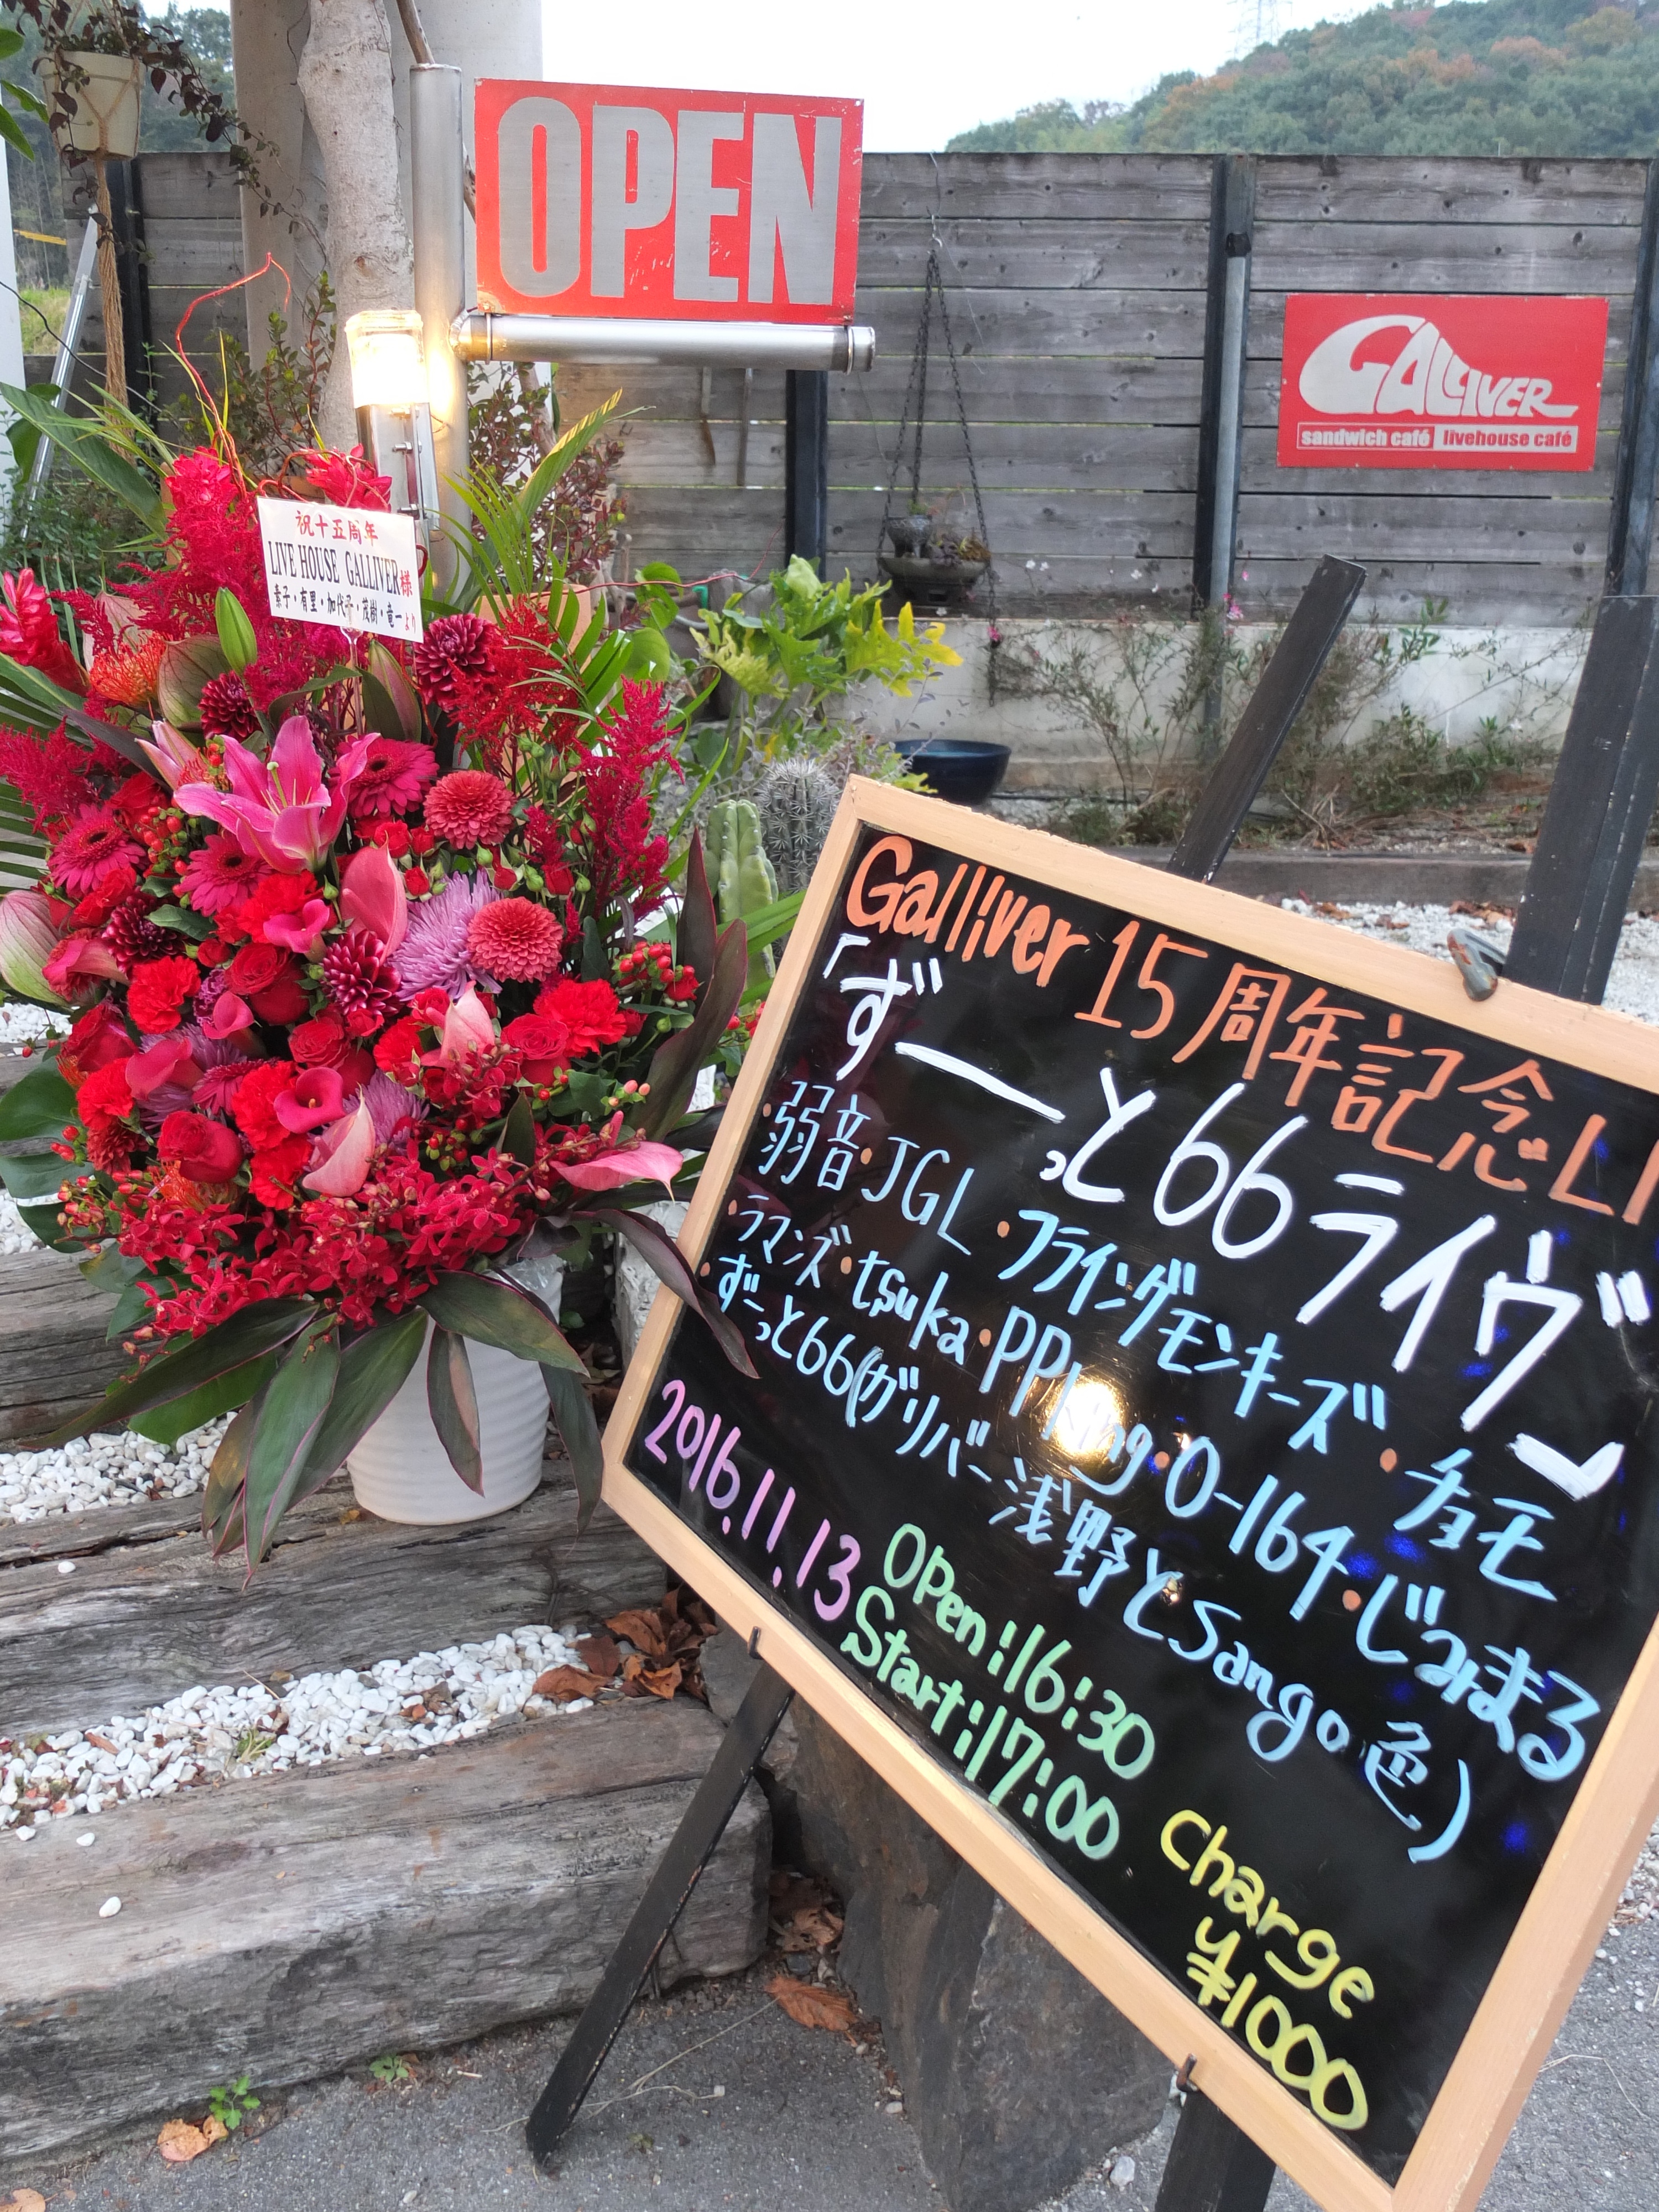 OPEN
GALLIVER
sandwich café livehouse café
祝十五周年
LIVE HOUSE GALLIVER様
素子・有里・加代子・茂樹・竜一より
Galliver 15周年記念LI
「ずーっと66ライヴ」
・弱音・JGL・フライングモンキーズ・チョモ
・ラマンズ・tsuka・PPKing・0-164・じみまる
・ずーっと66(ガリバー浅野とSango色)
2016.11.13
Open:16:30
Start:17:00
Charge
¥1000